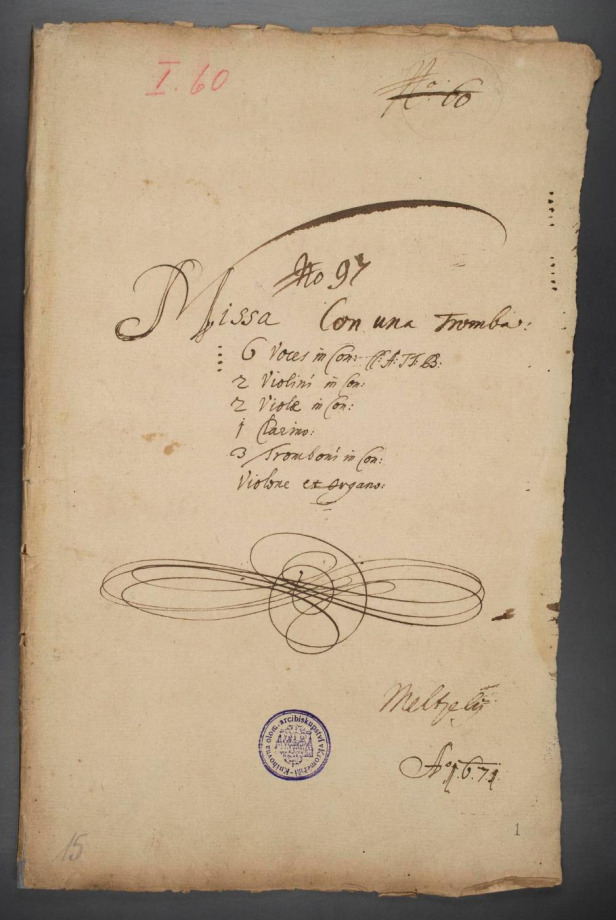 I. 60
No: 60
No 97
Missa Con una Tromba:
6 Voces in Con: CC: A: TT: B:
2 Violini in Con:
2 Violæ in Con:
1 Clarino:
3 Tromboni in Con:
Violone et Organo:
Meltzelij
Knihovna olom. arcibiskupství v Kroměříži
Ao 1671
1
15